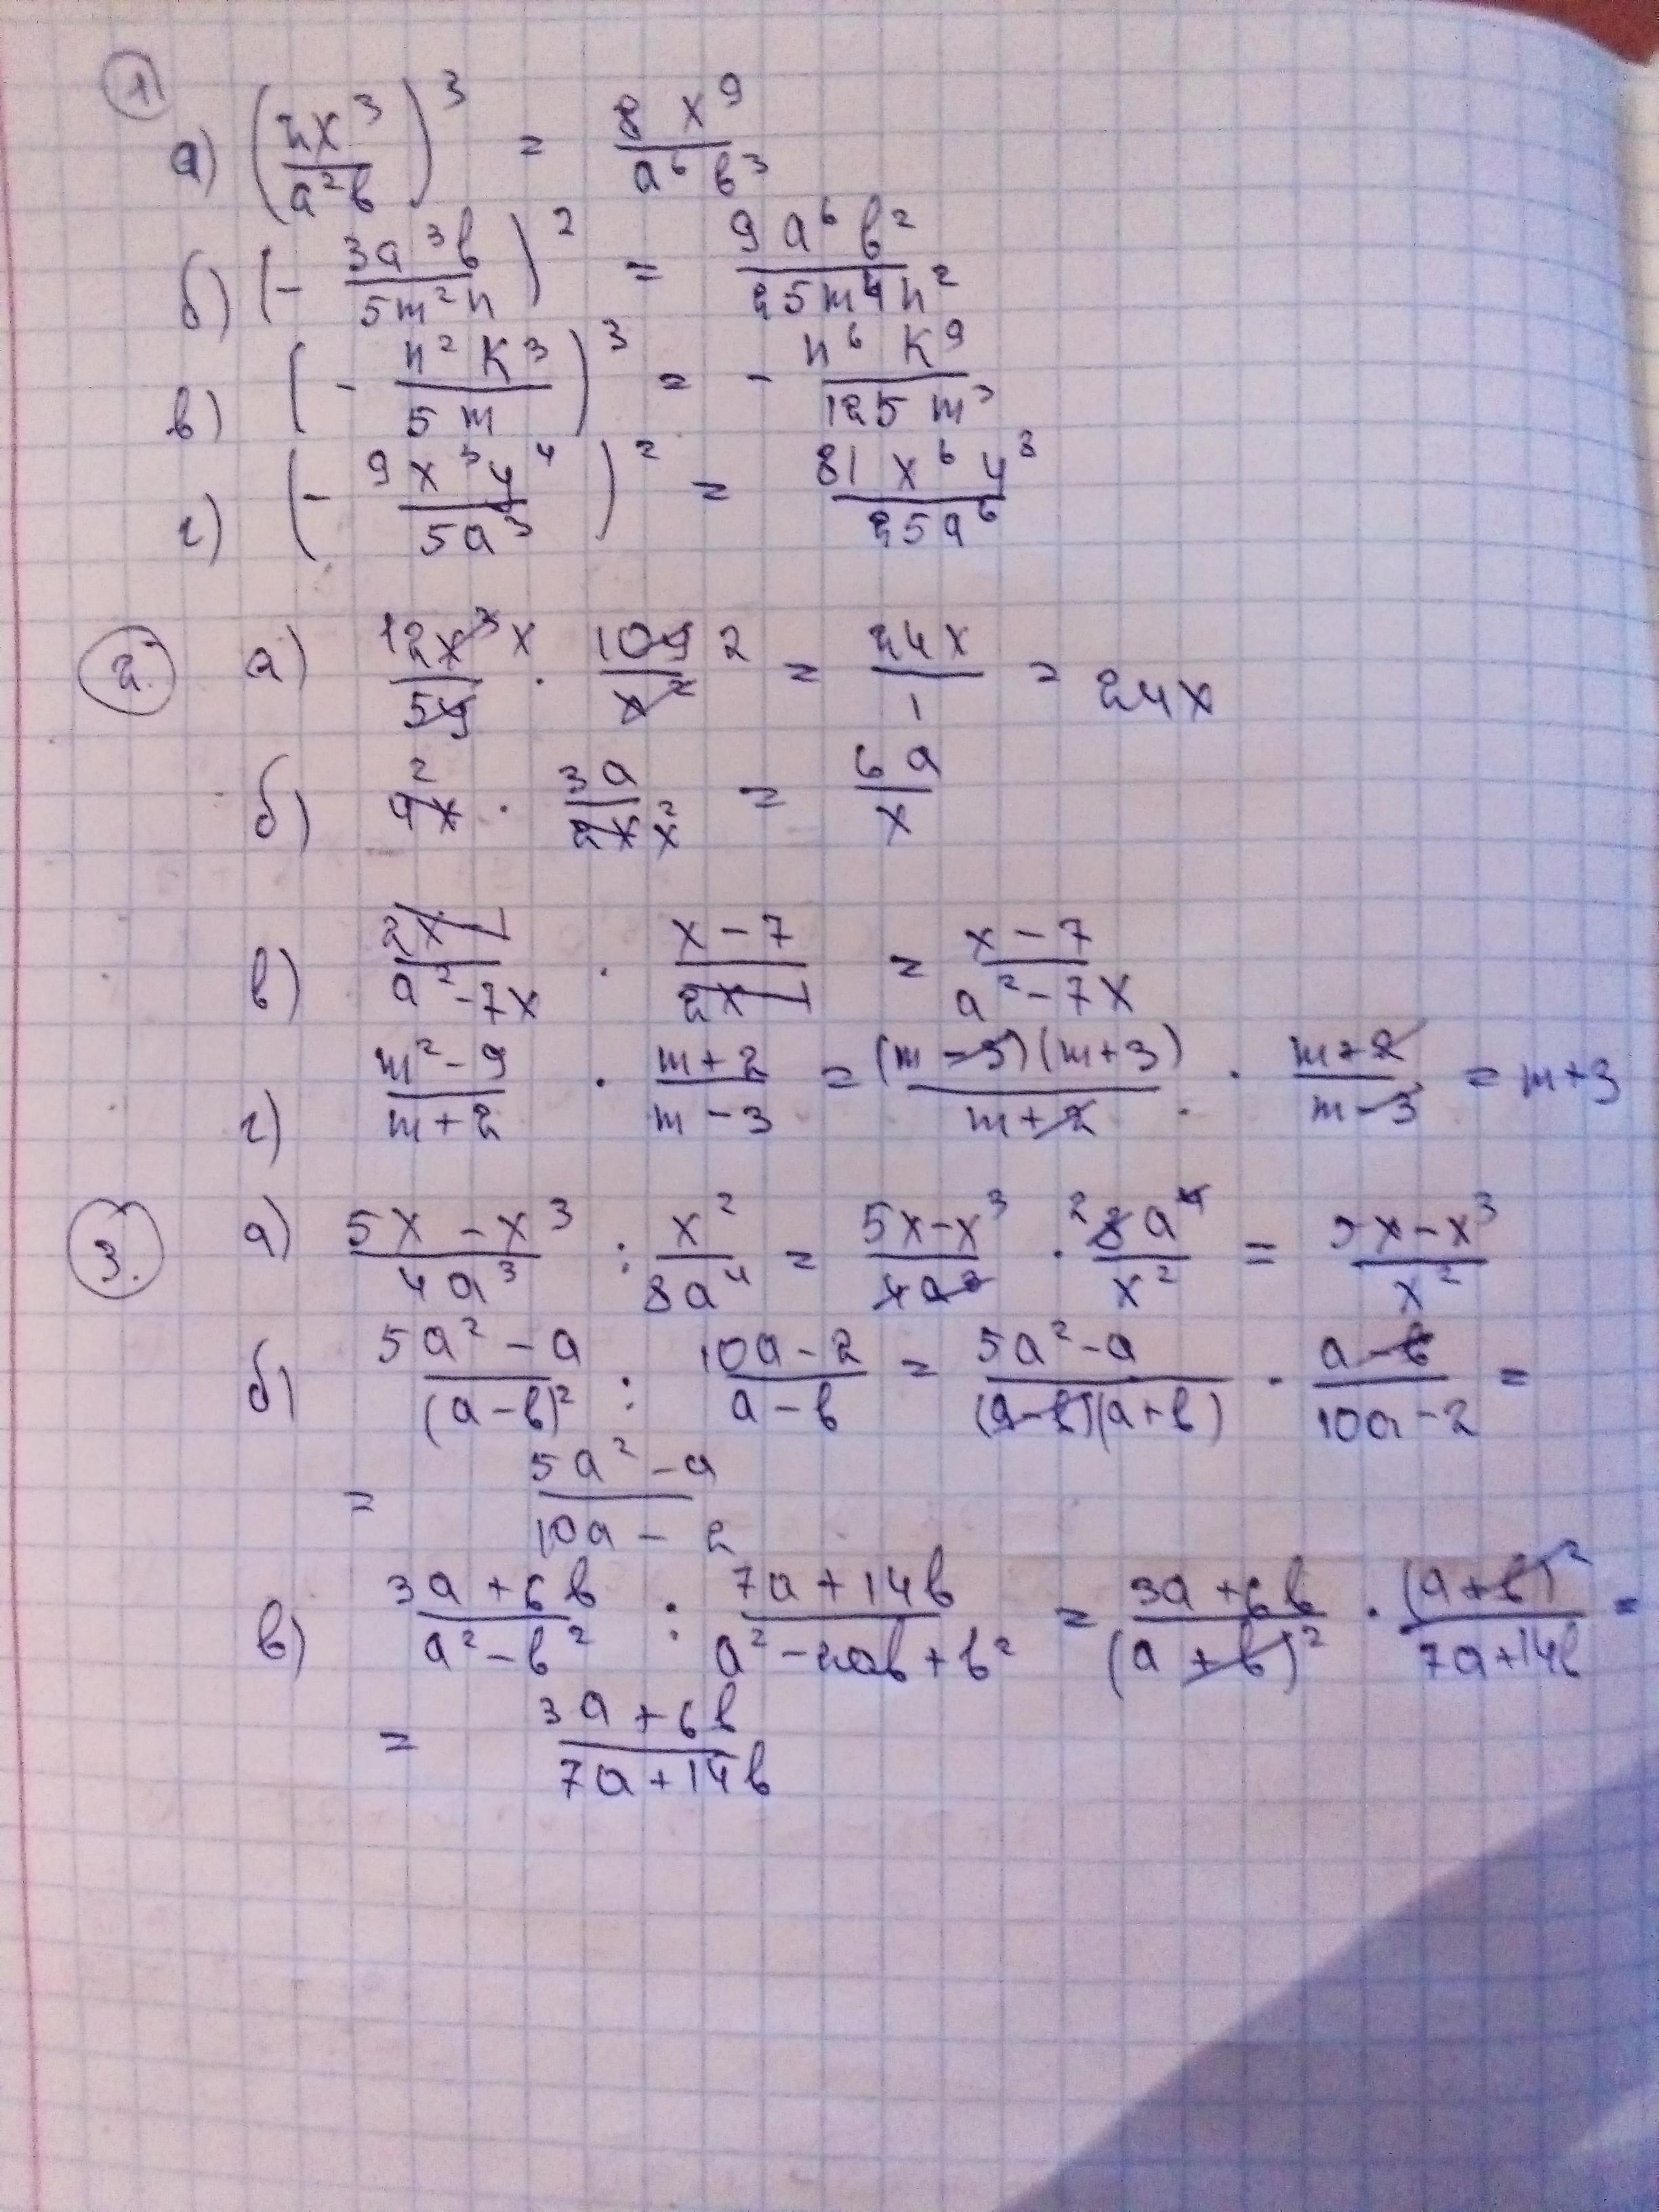 1
а) (2x³/a²b)³ = 8x⁹/a⁶b³
б) (- 3a³b/5m²n)² = 9a⁶b²/25m⁴n²
в) (- n²k³/5m)³ = - n⁶k⁹/125m³
г) (- 9x³y⁴/5a³)² = 81x⁶y⁸/25a⁶
2. а) 12x³ x/5y · 10y 2/x² = 24x/1 = 24x
б) 2 4x · 3a/2x x² = 6a/x
в) 2x-1/a²-7x · x-7/2x-1 = x-7/a²-7x
г) m²-9/m+2 · m+2/m-3 = (m-3)(m+3)/m+2 · m+2/m-3 = m+3
3. а) 5x-x³/4a³ : x²/8a⁴ = 5x-x³/4a³ · 2 8a⁴/x² = 5x-x³/x²
б) 5a²-a/(a-b)² : 10a-2/a-b = 5a²-a/(a-b)(a+b) · a-b/10a-2 =
= 5a²-a/10a-2
в) 3a+6b/a²-b² : 7a+14b/a²-2ab+b² = 3a+6b/(a+b)² · (a+b)²/7a+14b =
= 3a+6b/7a+14b